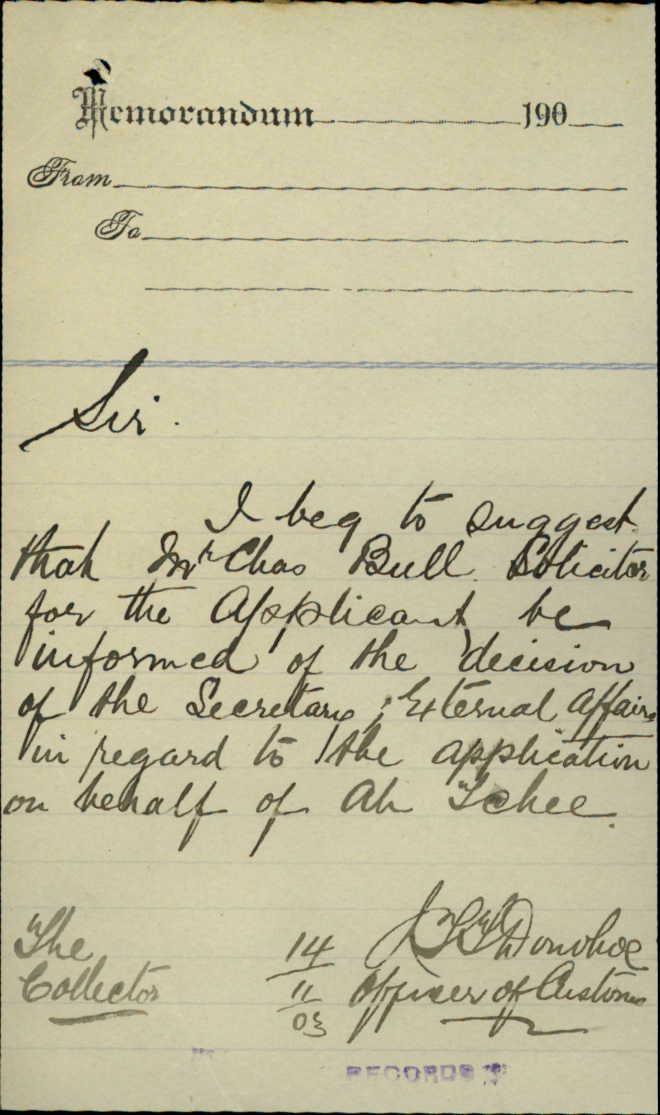 Memorandum 190
From
To
Sir.
I beg to suggest
that Mr Chas Bull Solicitor
for the Applicant, be
informed of the decision
of the Secretary, External Affairs
in regard to the application
on behalf of Ah Tchee.
The
Collector
14
11
03
Donohoe
Officer of Customs
RECORDS